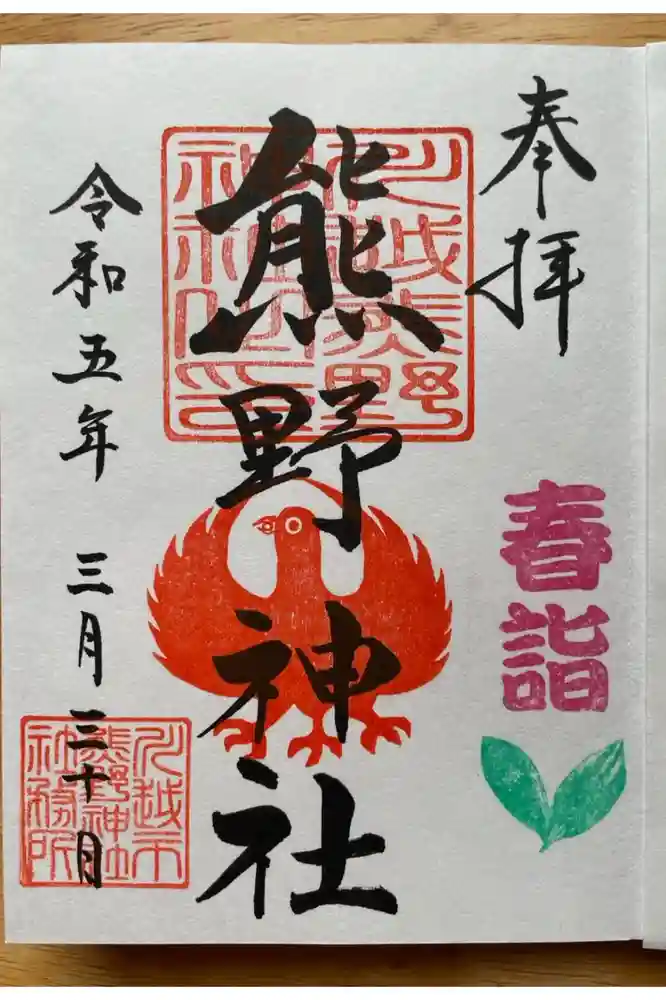 奉拝
春詣
熊野神社
令和五年 三月三十日
川越市
熊野神社
社務所